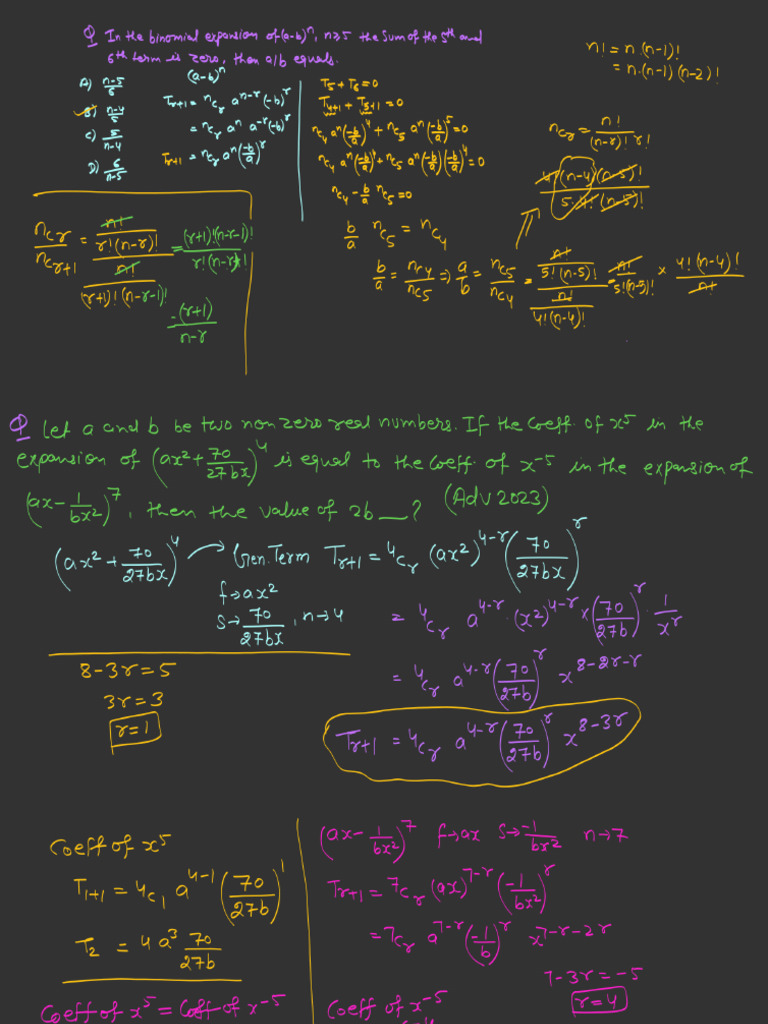 Q In the binomial expansion of (a-b)^n, n≥5 the sum of the 5th and
6th term is zero, then a/b equals.
A) (n-5)/6
B) (n-4)/5
C) 5/(n-4)
D) 6/(n-5)
(a-b)^n
T_{r+1} = nC_r a^{n-r} (-b)^r
= nC_r a^n a^{-r} (-b)^r
T_{r+1} = nC_r a^n (-b/a)^r
T_5 + T_6 = 0
T_{4+1} + T_{5+1} = 0
nC_4 a^n (-b/a)^4 + nC_5 a^n (-b/a)^5 = 0
nC_4 a^n (-b/a)^4 + nC_5 a^n (-b/a) (-b/a)^4 = 0
nC_4 - b/a nC_5 = 0
b/a nC_5 = nC_4
b/a = nC_4/nC_5 ⇒ a/b = nC_5/nC_4 = (n!/(5!(n-5)!))/(n!/(4!(n-4)!)) = n!/(5!(n-5)!) × (4!(n-4)!)/n!
n! = n.(n-1)!
= n.(n-1)(n-2)!
nC_r = n!/((n-r)! r!)
4!(n-4)(n-5)!/(5.4!(n-5)!)
nC_r/nC_{r+1} = (n!/(r!(n-r)!))/(n!/((r+1)!(n-r-1)!)) = (r+1)!(n-r-1)!/(r!(n-r)!)
= (r+1)/(n-r)
Q Let a and b be two nonzero real numbers. If the Coeff. of x^5 in the
expansion of (ax^2 + 70/(27bx))^4 is equal to the Coeff. of x^{-5} in the expansion of
(ax - 1/(bx^2))^7, then the value of 2b __? (Adv 2023)
(ax^2 + 70/(27bx))^4 → Gen. Term T_{r+1} = 4C_r (ax^2)^{4-r} (70/(27bx))^r
f→ax^2
S→70/(27bx), n→4
= 4C_r a^{4-r}.(x^2)^{4-r} × (70/(27b))^r . 1/x^r
= 4C_r a^{4-r} (70/(27b))^r x^{8-2r-r}
T_{r+1} = 4C_r a^{4-r} (70/(27b))^r x^{8-3r}
8-3r = 5
3r = 3
r = 1
Coeff of x^5
T_{1+1} = 4C_1 a^{4-1} (70/(27b))^1
T_2 = 4a^3 70/(27b)
Coeff of x^5 = Coeff of x^{-5}
(ax - 1/(bx^2))^7 f→ax S→-1/(bx^2) n→7
T_{r+1} = 7C_r (ax)^{7-r} (-1/(bx^2))^r
= 7C_r a^{7-r} (-1/b)^r x^{7-r-2r}
7-3r = -5
r = 4
Coeff of x^{-5}